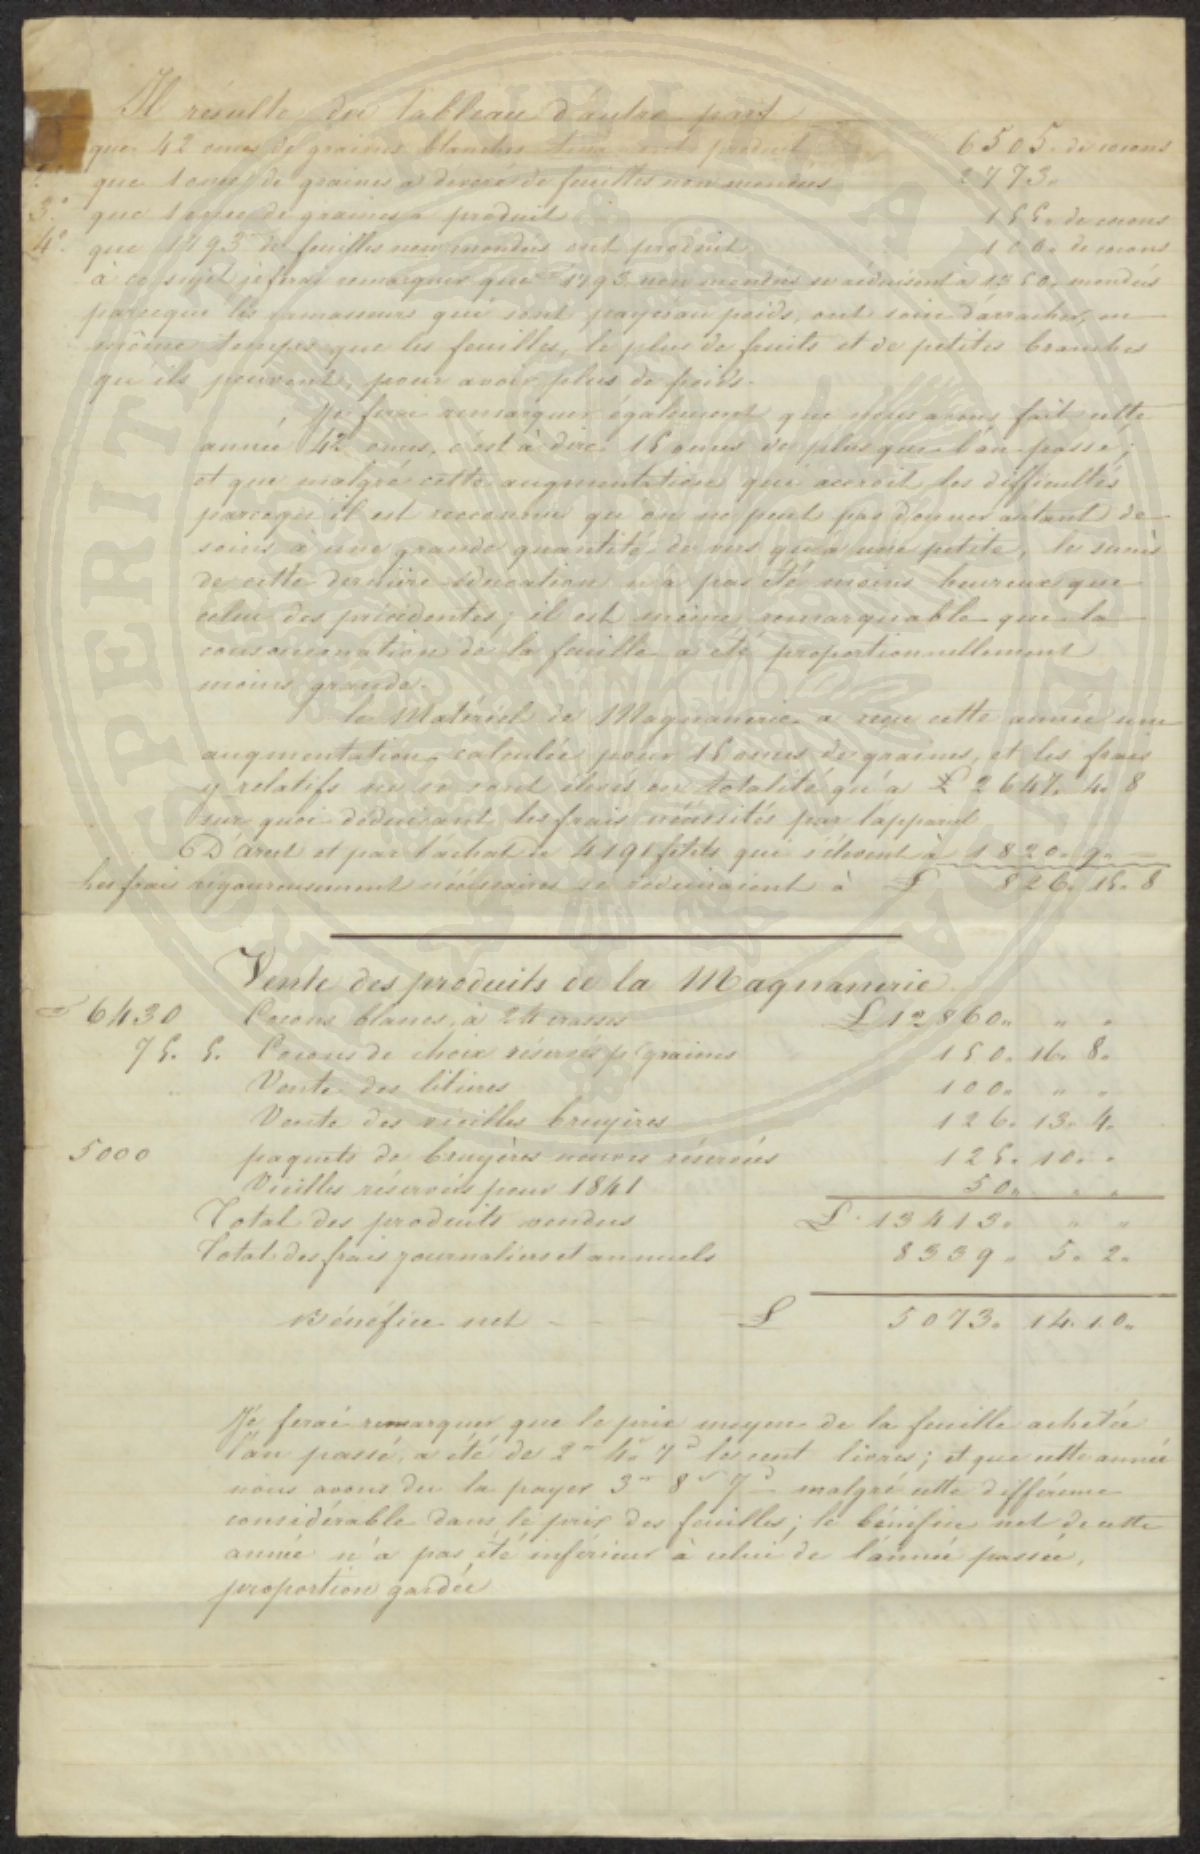 Il résulte du tableau d'autre part
que 42 onces de graines blanches ont produit 6505. de cocons
2° que 1 once de graines a devoré de feuilles non mondées 2773.
3° que 1 once de graines a produit 155. de cocons
4° que 1793 de feuilles non mondées ont produit 100. de cocons
à ce sujet je ferai remarquer que 1793 non mondées se réduisent à 1350. mondées
parceque les ramasseurs qui sont payés au poids, ont soin d'arracher, en
même temps que les feuilles, le plus de fruits et de petites branches
qu'ils peuvent, pour avoir plus de poids.
Je ferai remarquer également que nous avons fait cette
année 42 onces, c'est à dire 15 onces de plus que l'an passé;
et que malgré cette augmentation qui accroit les difficultés
parceque il est reconnu qu'on ne peut pas donner autant de
soins à une grande quantité de vers qu'à une petite, le succès
de cette dernière éducation n'a pas été moins heureux que
celui des précédentes; il est même remarquable que la
consommation de la feuille a été proportionnellement
moins grande.
Le Matériel de Magnanerie a reçu cette année une
augmentation calculée pour 15 onces de graines, et les frais
y relatifs ne se sont élevés en totalité qu'à £ 2647. 4. 8
sur quoi déduisant les frais nécessités par l'appareil
D'Arcet et par l'achat de 4191 filets qui s'élevent à 1820. 9. —
les frais rigoureusement nécessaires se réduiraient à £ 826. 15. 8
Vente des produits de la Magnanerie
6430 Cocons blancs, à 24 crasses £ 12860. " "
75. 5. Cocons de choix réservés p. graines 150. 16. 8.
Vente des litières 100. " "
Vente des vieilles bruyères 126. 13. 4.
5000 paquets de bruyères neuves réservées 125. 10. "
Vieilles réservées pour 1841 50. " "
Total des produits vendus £ 13413. " "
Total des frais journaliers et annuels 8339. 5. 2.
Bénéfice net — — — £ 5073. 14. 10.
Je ferai remarquer que le prix moyen de la feuille achetée
l'an passé, a été de 2 4 7 les cent livres; et que cette année
nous avons du la payer 3 8 7 malgré cette différence
considérable dans le prix des feuilles; le bénéfice net de cette
année n'a pas été inférieur à celui de l'année passée,
proportion gardée
PROSPERITÀ PUBLICA